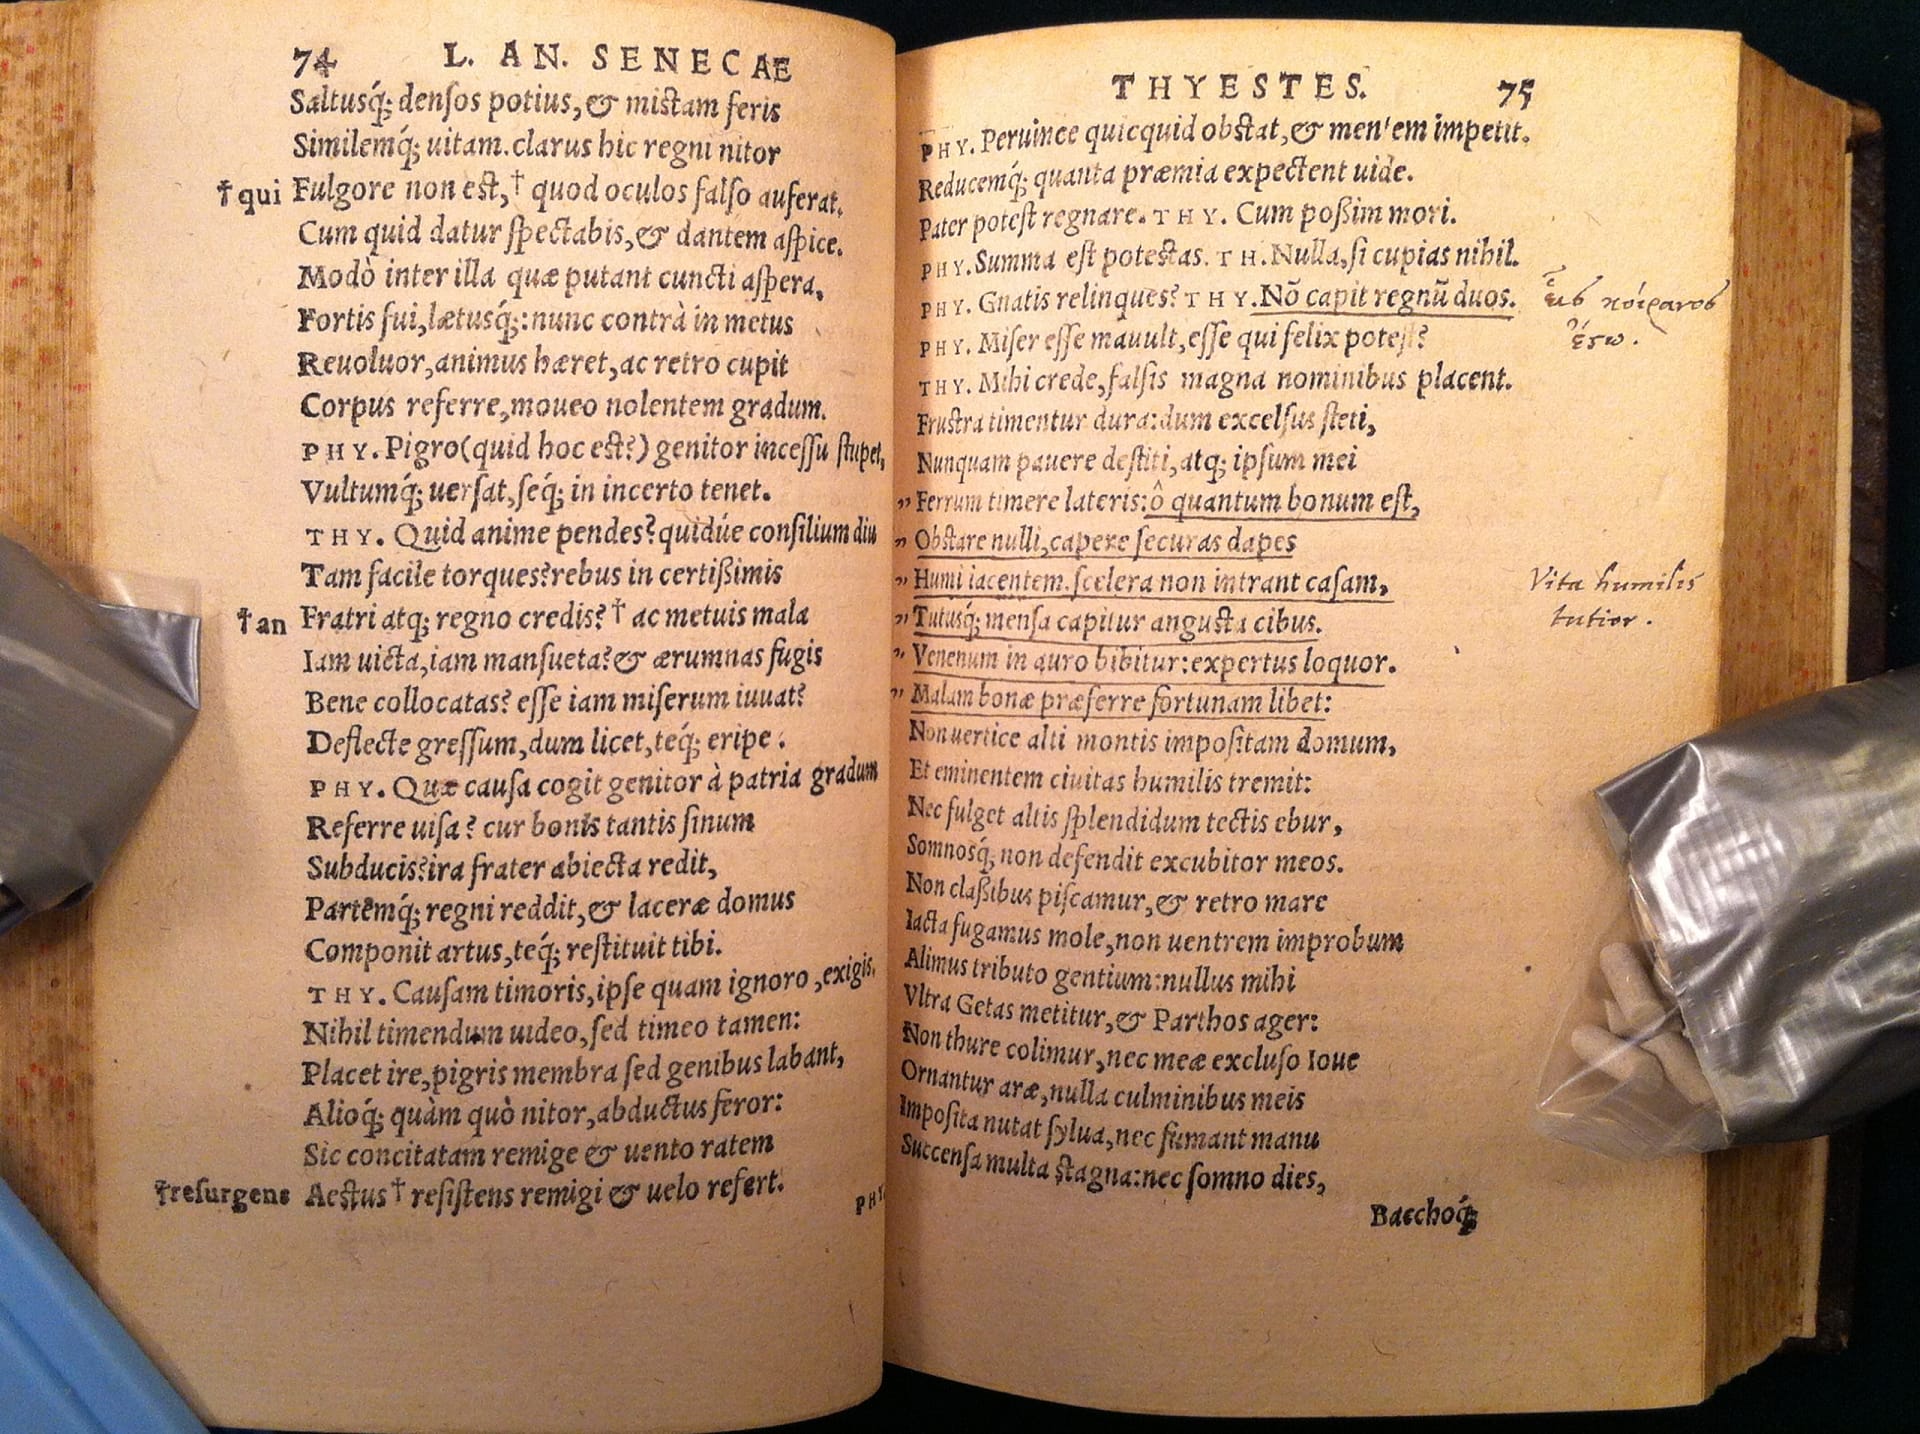 74 L. AN. SENECAE
Saltusq́; densos potius, & mistam feris
Similemq́; uitam. clarus hic regni nitor
† qui Fulgore non est, † quod oculos falso auferat.
Cum quid datur spectabis, & dantem aspice.
Modò inter illa quæ putant cuncti aspera,
Fortis fui, lætusq́;: nunc contrà in metus
Reuoluor, animus hæret, ac retro cupit
Corpus referre, moueo nolentem gradum.
PHY. Pigro (quid hoc est?) genitor incessu stupet,
Vultumq́; uersat, seq́; in incerto tenet.
THY. Quid anime pendes? quidúe consilium diu
Tam facile torques? rebus in certißimis
† an Fratri atq; regno credis? † ac metuis mala
Iam uicta, iam mansueta? & ærumnas fugis
Bene collocatas? esse iam miserum iuuat?
Deflecte gressum, dum licet, teq́; eripe.
PHY. Quæ causa cogit genitor à patria gradum
Referre uisa? cur bonis tantis sinum
Subducis? ira frater abiecta redit,
Partemq́; regni reddit, & laceræ domus
Componit artus, teq́; restituit tibi.
THY. Causam timoris, ipse quam ignoro, exigis.
Nihil timendum uideo, sed timeo tamen:
Placet ire, pigris membra sed genibus labant,
Alioq́; quàm quò nitor, abductus feror:
Sic concitatam remige & uento ratem
† resurgens Aestus † resistens remigi & uelo refert.
PHY
THYESTES. 75
PHY. Peruince quicquid obstat, & men'em impetit.
Reducemq́; quanta præmia expectent uide.
Pater potest regnare. THY. Cum poßim mori.
PHY. Summa est potestas. TH. Nulla, si cupias nihil.
PHY. Gnatis relinques? THY. Nō capit regnū duos.
εἷς κοίρανος
ἔστω.
PHY. Miser esse mauult, esse qui felix potest?
THY. Mihi crede, falsis magna nominibus placent.
Frustra timentur dura: dum excelsus steti,
Nunquam pauere destiti, atq; ipsum mei
„ Ferrum timere lateris: ô quantum bonum est,
„ Obstare nulli, capere securas dapes
„ Humi iacentem. scelera non intrant casam,
Vita humilis
tutior.
„ Tutusq́; mensa capitur angusta cibus.
„ Venenum in auro bibitur: expertus loquor.
„ Malam bonæ præferre fortunam libet:
Non uertice alti montis impositam domum,
Et eminentem ciuitas humilis tremit:
Nec fulget altis splendidum tectis ebur,
Somnosq́; non defendit excubitor meos.
Non claßibus piscamur, & retro mare
Iacta fugamus mole, non uentrem improbum
Alimus tributo gentium: nullus mihi
Vltra Getas metitur, & Parthos ager:
Non thure colimur, nec meæ excluso Ioue
Ornantur aræ, nulla culminibus meis
Imposita nutat sylua, nec fumant manu
Succensa multa stagna: nec somno dies,
Bacchoq́;